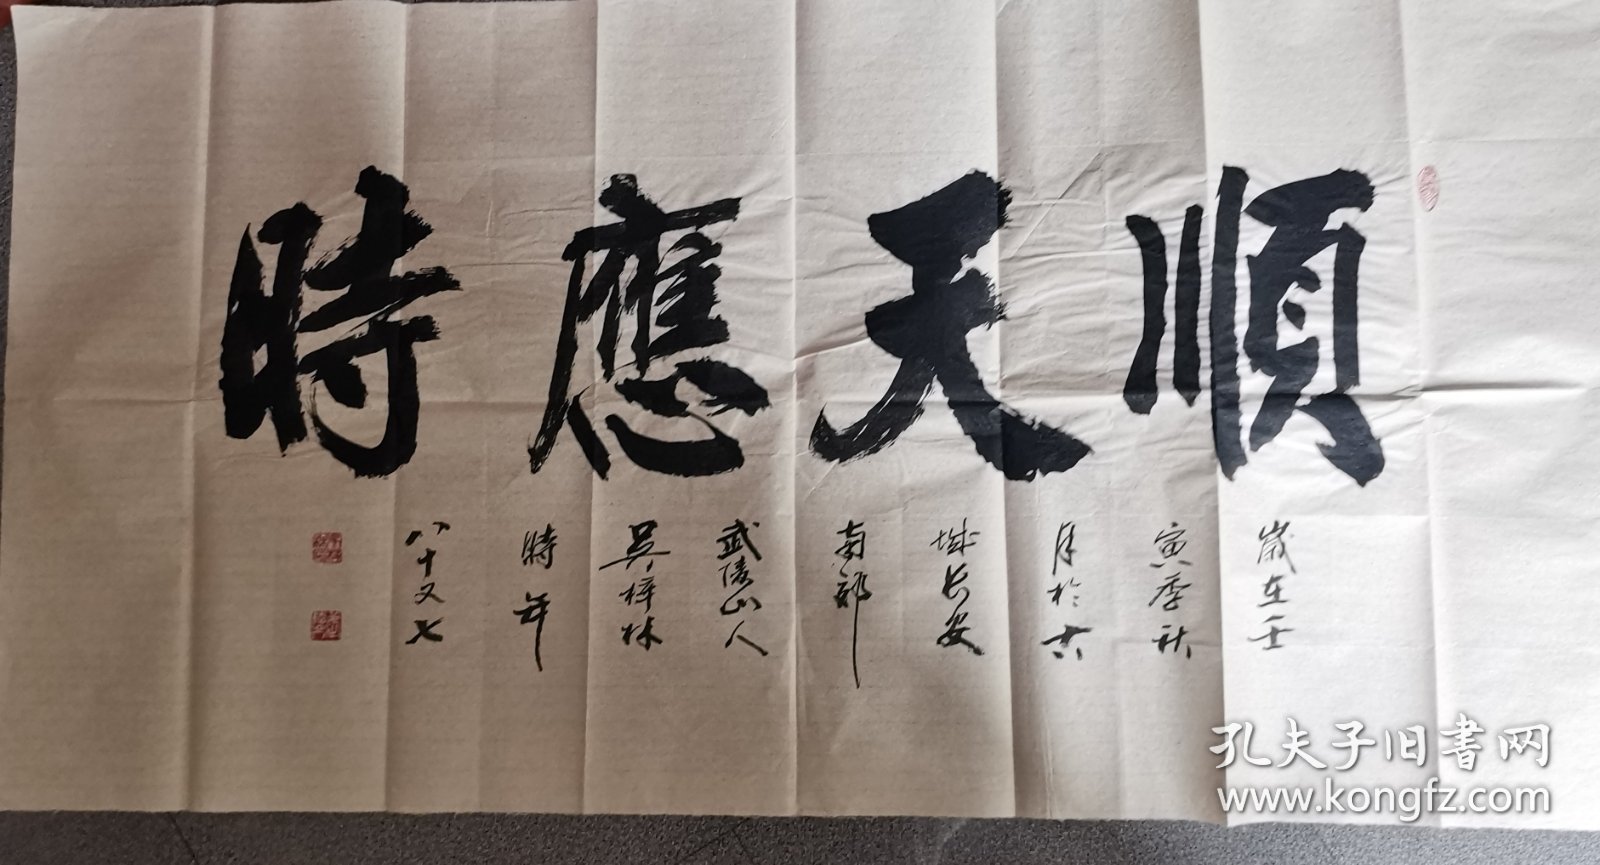 順天應時
歲在壬
寅季秋
月於古
城長安
南郊
武陵山人
吳梓林
時年
八十又七
孔夫子旧書网
www.kongfz.com